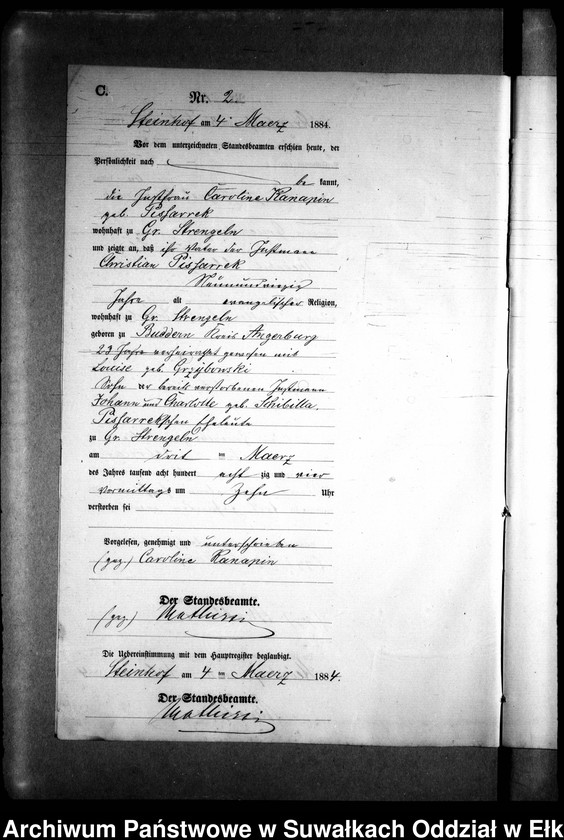 C.
Nr. 2.
Steinhof am 4 Maerz 1884.
Vor dem unterzeichneten Standesbeamten erschien heute, der
Persönlichkeit nach
be kannt,
die Instfrau Caroline Kanapin
geb. Pissarrek
wohnhaft zu Gr. Strengeln
und zeigte an, daß ihr Vater der Instmann
Christian Pissarrek
Neunundvierzig
Jahre alt evangelischer Religion,
wohnhaft zu Gr. Strengeln
geboren zu Buddern Kreis Angerburg
23 Jahre verheirathet gewesen mit
Louise geb. Grzybowski
Sohn der bereits verstorbenen Instmann
Johann und Charlotte geb. Schibilla,
Pissarrekschen Eheleute
zu Gr. Strengeln
am drit en Maerz
des Jahres tausend acht hundert acht zig und vier
Vormittags um Zehn Uhr
verstorben sei
Vorgelesen, genehmigt und unterschrieben
(gez.) Caroline Kanapin
Der Standesbeamte.
(gez.)
Die Uebereinstimmung mit dem Hauptregister beglaubigt.
Steinhof am 4 en Maerz 1884.
Der Standesbeamte.
Archiwum Państwowe w Suwałkach Oddział w Ełku